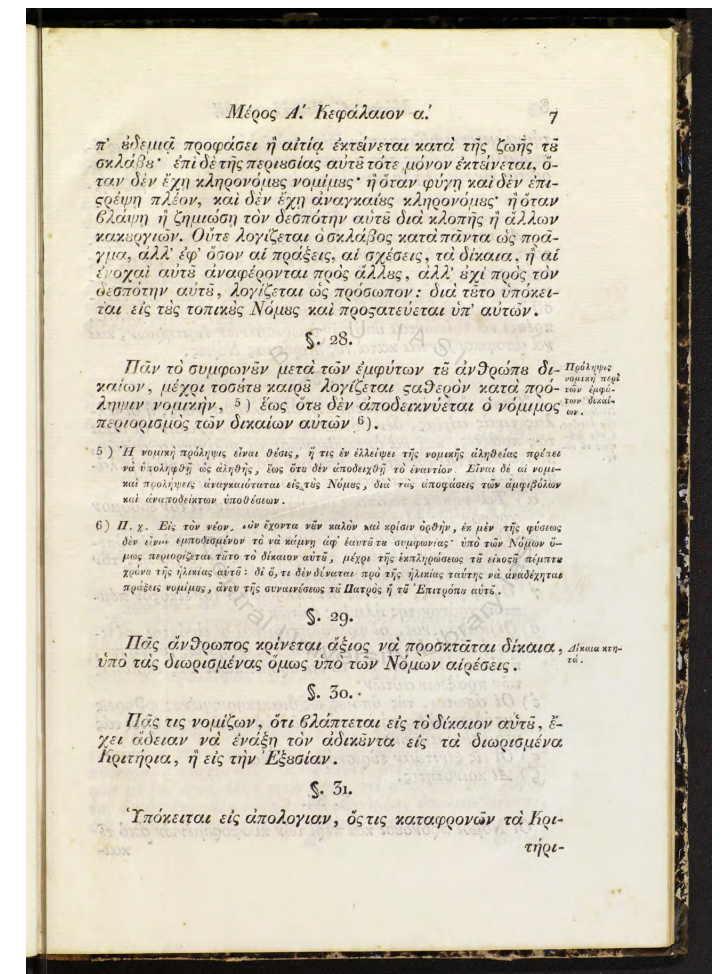 Μέρος Α΄. Κεφάλαιον α΄. 7
π' ȣ̓δεμιᾷ προφάσει ἢ αἰτίᾳ ἐκτείνεται κατὰ τῆς ζωῆς τȣ͂
σκλάβȣ· ἐπὶ δὲ τῆς περιȣσίας αὐτȣ͂ τότε μόνον ἐκτείνεται, ὅ-
ταν δὲν ἔχῃ κληρονόμȣς νομίμȣς· ἢ ὅταν φύγῃ καὶ δὲν ἐπι-
ϛρέψῃ πλέον, καὶ δὲν ἔχῃ ἀναγκαίȣς κληρονόμȣς· ἢ ὅταν
βλάψῃ ἢ ζημιώσῃ τὸν δεσπότην αὑτȣ͂ διὰ κλοπῆς ἢ ἄλλων
κακȣργιῶν. Οὔτε λογίζεται ὁ σκλάβος κατὰ πάντα ὡς πρᾶ-
γμα, ἀλλ' ἐφ' ὅσον αἱ πράξεις, αἱ σχέσεις, τὰ δίκαια, ἢ αἱ
ἐνοχαὶ αὐτȣ͂ ἀναφέρονται πρὸς ἄλλȣς, ἀλλ' ȣ̓χὶ πρὸς τὸν
δεσπότην αὑτȣ͂, λογίζεται ὡς πρόσωπον: διὰ τȣ͂το ὑπόκει-
ται εἰς τȣ̀ς τοπικȣ̀ς Νόμȣς καὶ προϛατεύεται ὑπ' αὐτῶν.
§. 28.
Πᾶν τὸ συμφωνȣ͂ν μετὰ τῶν ἐμφύτων τȣ͂ ἀνθρώπȣ δι-
καίων, μέχρι τοσȣ́τȣ καιρȣ͂ λογίζεται ϛαθερὸν κατὰ πρό-
ληψιν νομικὴν, 5) ἕως ὅτȣ δὲν ἀποδεικνύεται ὁ νόμιμος
περιορισμὸς τῶν δικαίων αὐτῶν 6).
Πρόληψις
νομικὴ περὶ
τῶν ἐμφύ-
των δικαί-
ων.
5) Ἡ νομικὴ πρόληψις εἶναι θέσις, ἥ τις ἐν ἐλλείψει τῆς νομικῆς ἀληθείας πρέπει
νὰ ὑποληφθῇ ὡς ἀληθὴς, ἕως ὅτȣ δὲν ἀποδειχθῇ τὸ ἐναντίον. Εἶναι δὲ αἱ νομι-
καὶ προλήψεις ἀναγκαιόταται εἰς τȣ̀ς Νόμȣς, διὰ τὰς ἀποφάσεις τῶν ἀμφιβόλων
καὶ ἀναποδείκτων ὑποθέσεων.
6) Π. χ. Εἰς τὸν νέον, τὸν ἔχοντα νȣ͂ν καλὸν καὶ κρίσιν ὀρθὴν, ἐκ μὲν τῆς φύσεως
δὲν εἶναι ἐμποδισμένον τὸ νὰ κάμνῃ ἀφ' ἑαυτȣ͂ τȣ συμφωνίας· ὑπὸ τῶν Νόμων ὅ-
μως περιορίζεται τȣ͂το τὸ δίκαιον αὐτȣ͂, μέχρι τῆς ἐκπληρώσεως τȣ͂ εἰκοϛȣ͂ πέμπτȣ
χρόνȣ τῆς ἡλικίας αὐτȣ͂: δι' ὅ, τι δὲν δύναται πρὸ τῆς ἡλικίας ταύτης νὰ ἀναδέχηται
πράξεις νομίμȣς, ἄνευ τῆς συναινέσεως τȣ͂ Πατρὸς ἢ τȣ͂ Ἐπιτρόπȣ αὑτȣ͂.
§. 29.
Πᾶς ἄνθρωπος κρίνεται ἄξιος νὰ προσκτᾶται δίκαια,
ὑπὸ τὰς διωρισμένας ὅμως ὑπὸ τῶν Νόμων αἱρέσεις.
Δίκαια κτη-
τά.
§. 30.
Πᾶς τις νομίζων, ὅτι βλάπτεται εἰς τὸ δίκαιον αὑτȣ͂, ἔ-
χει ἄδειαν νὰ ἐνάξῃ τὸν ἀδικȣ͂ντα εἰς τὰ διωρισμένα
Κριτήρια, ἢ εἰς τὴν Ἐξȣσίαν.
§. 31.
Ὑπόκειται εἰς ἀπολογίαν, ὅςτις καταφρονῶν τὰ Κρι-
τήρι-